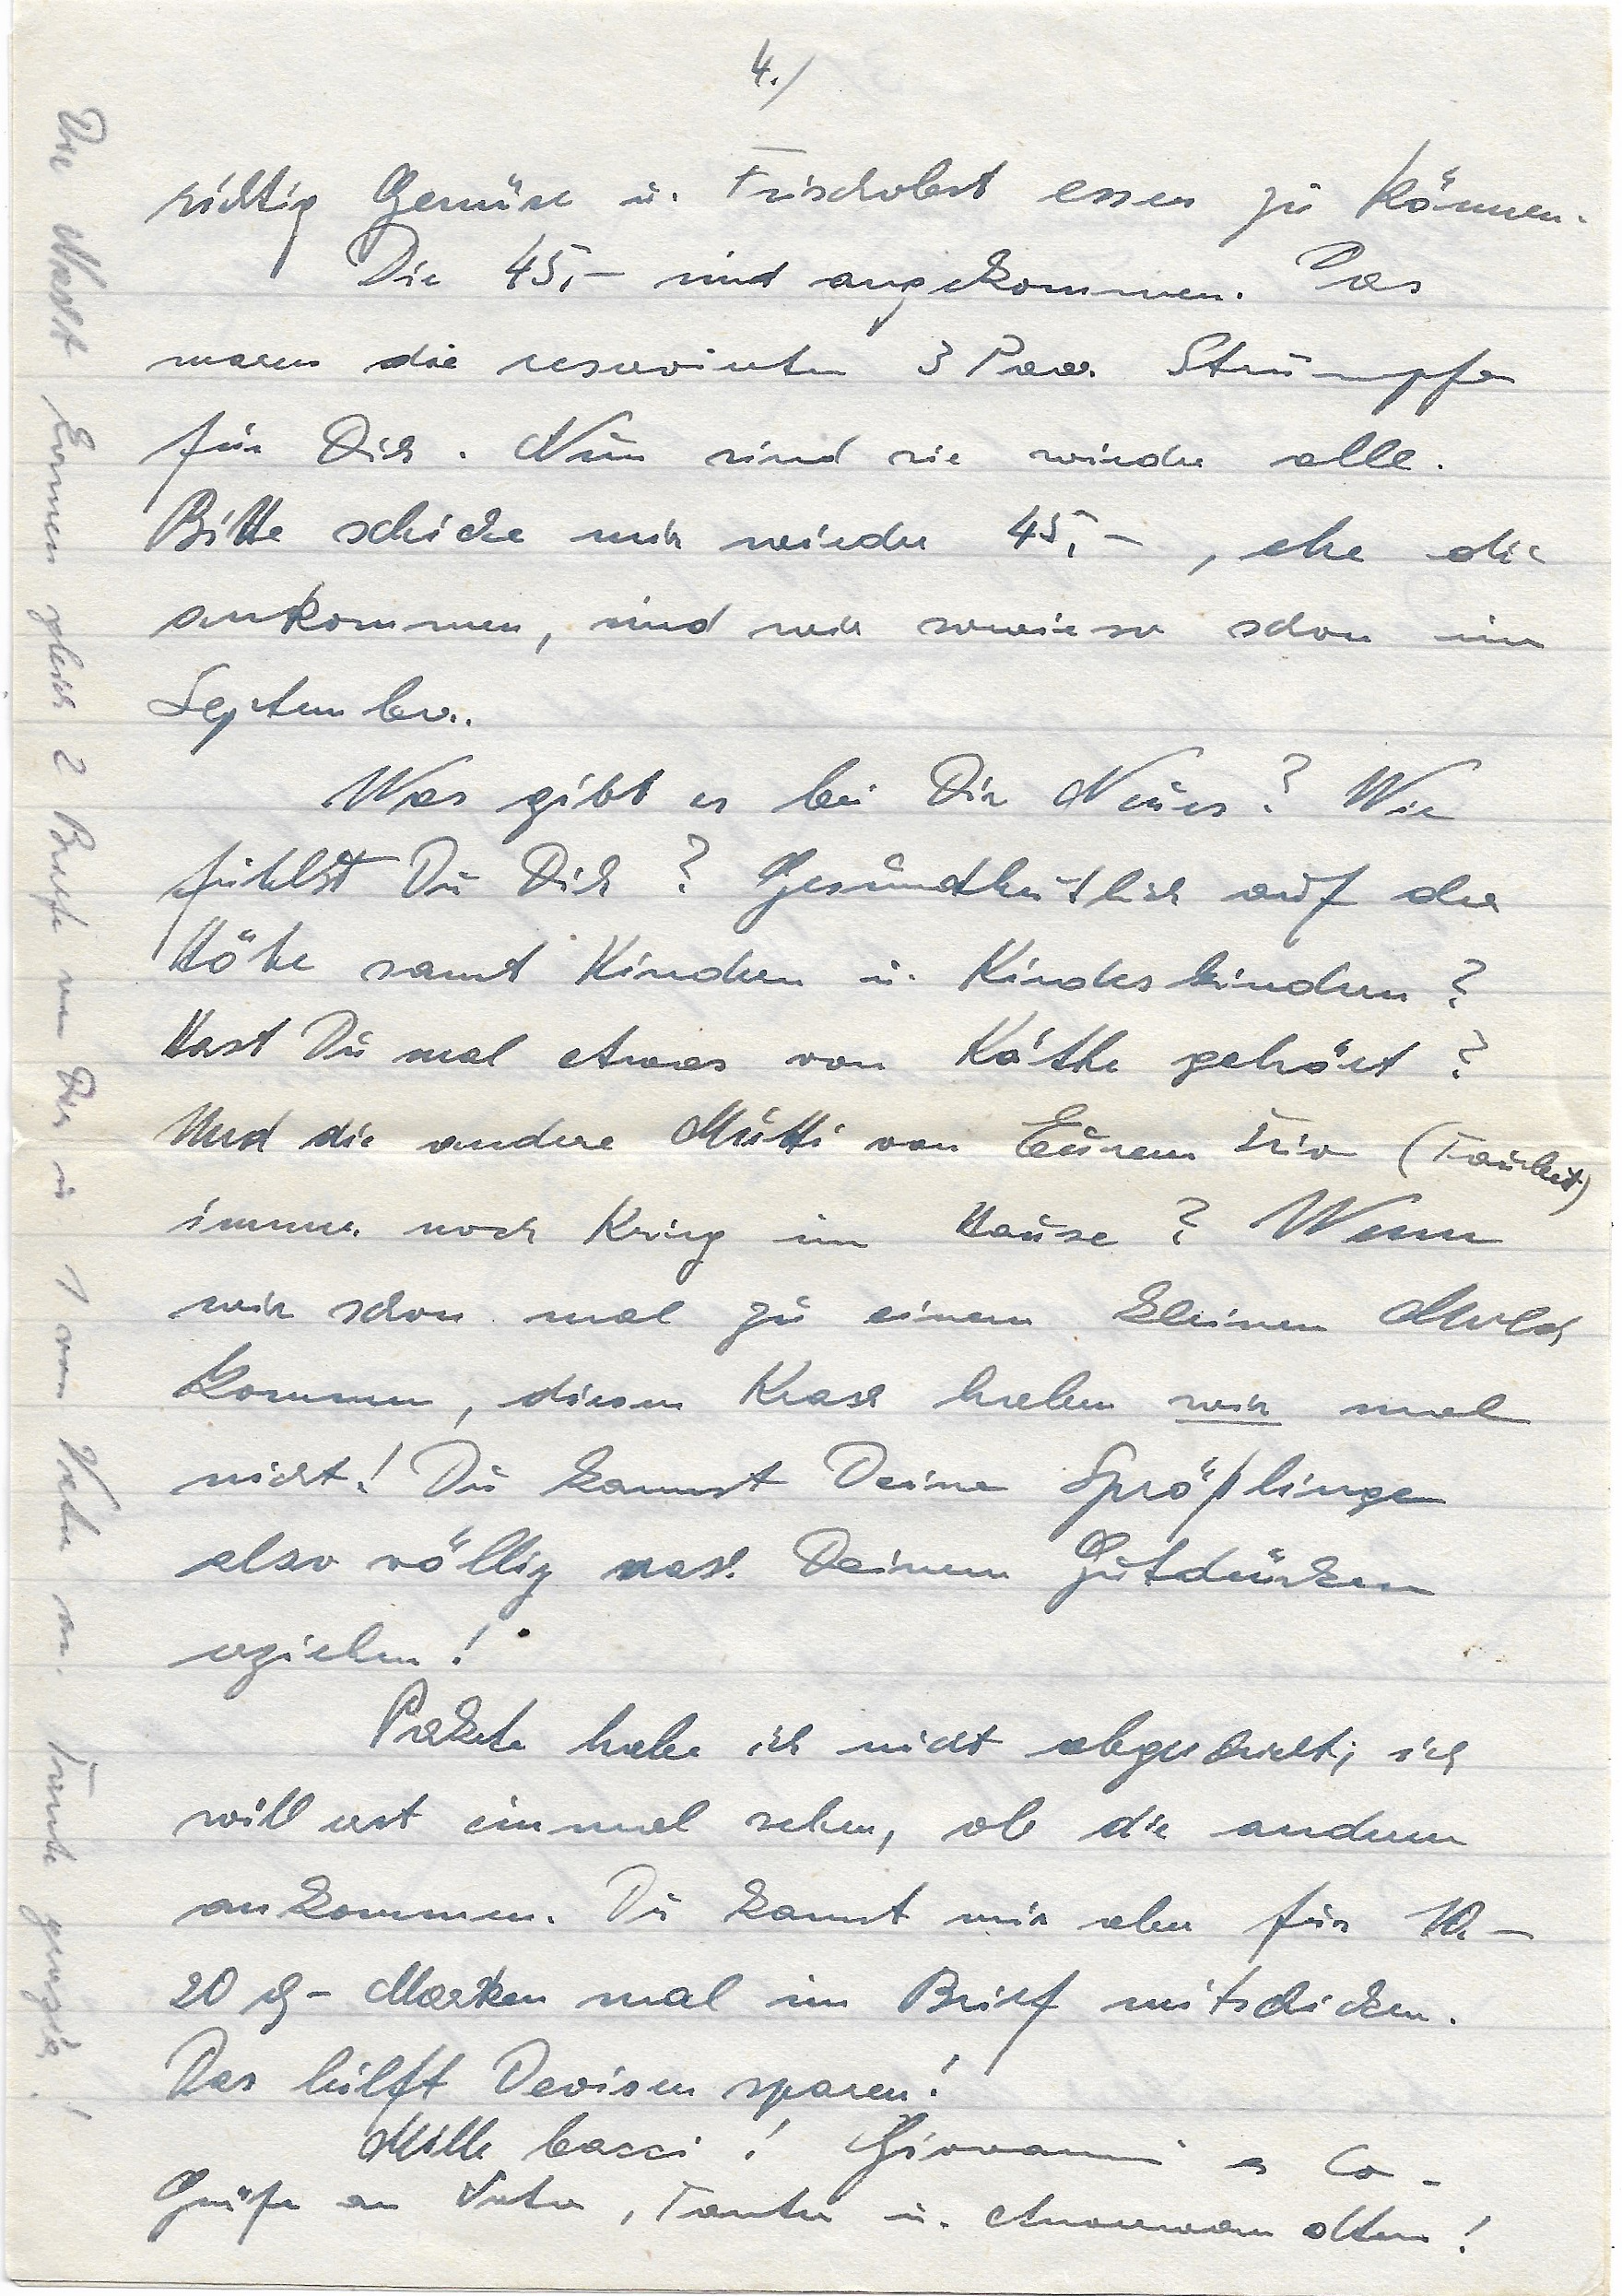 4./
richtig Gemüse u. Frischobst essen zu können.
Die 45,– sind angekommen. Das
waren die reservierten 3 Paar Strümpfe
für Dich. Nun sind sie wieder alle.
Bitte schicke mir wieder 45,–, ehe die
ankommen, sind wir sowieso schon im
September.
Was gibt es bei Dir Neues? Wie
fühlst Du Dich? Gesundheitlich auf der
Höhe samt Kindern u. Kindeskindern?
Hast Du mal etwas von Käthe gehört?
Und die andere Mutti von Eurem Trio
immer noch Krieg im Hause? Wenn
wir schon mal zu einem kleinen Molch
kommen, diesen Krach haben wir mal
nicht! Du kannst Deine Sprößlinge
also völlig nach Deinem Gutdünken
erziehen!
Pakete habe ich nicht abgeschickt; ich
will erst einmal sehen, ob die anderen
ankommen. Du kannst mir aber für 10.–
20 Marken mal im Brief mitschicken.
Das hilft Devisen sparen!
Mille bacci! Giovanni e Co.
Grüße an Vater, Tante u.
Die Nacht kamen gleich 2 Briefe von Dir u. 1 von Vater an. Tante grazie!